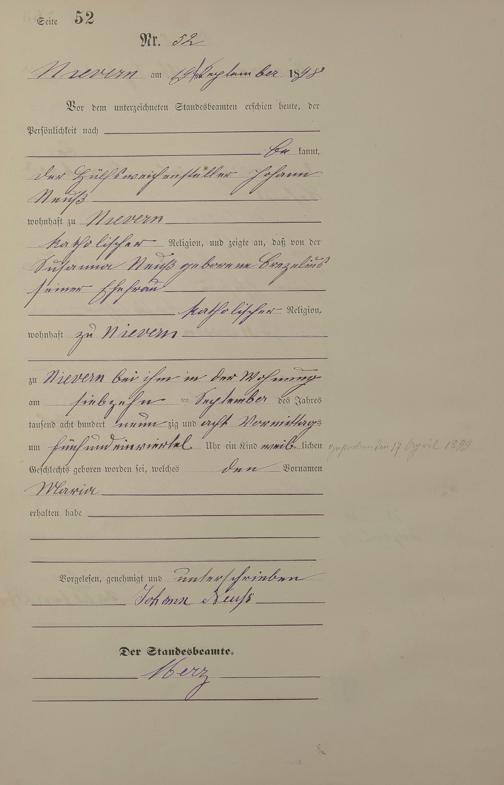 Seite 52
Nr. 52
Nievern am 19 September 1898
Vor dem unterzeichneten Standesbeamten erschien heute, der
Persönlichkeit nach
be kannt,
der Hülfsweichensteller Johann
Neuß
wohnhaft zu Nievern
katholischer Religion, und zeigte an, daß von der
Susanna Neuß geborene
seiner Ehefrau
katholischer Religion,
wohnhaft zu Nievern
zu Nievern bei ihm in der Wohnung
am siebzehn ten September des Jahres
tausend acht hundert neun zig und acht Vormittags
um fünfundeinviertel Uhr ein Kind weib lichen
gestorben den 17 April 1899
Geschlechts geboren worden sei, welches den Vornamen
Maria
erhalten habe
Vorgelesen, genehmigt und unterschrieben
Johann Neuß
Der Standesbeamte.
Merz